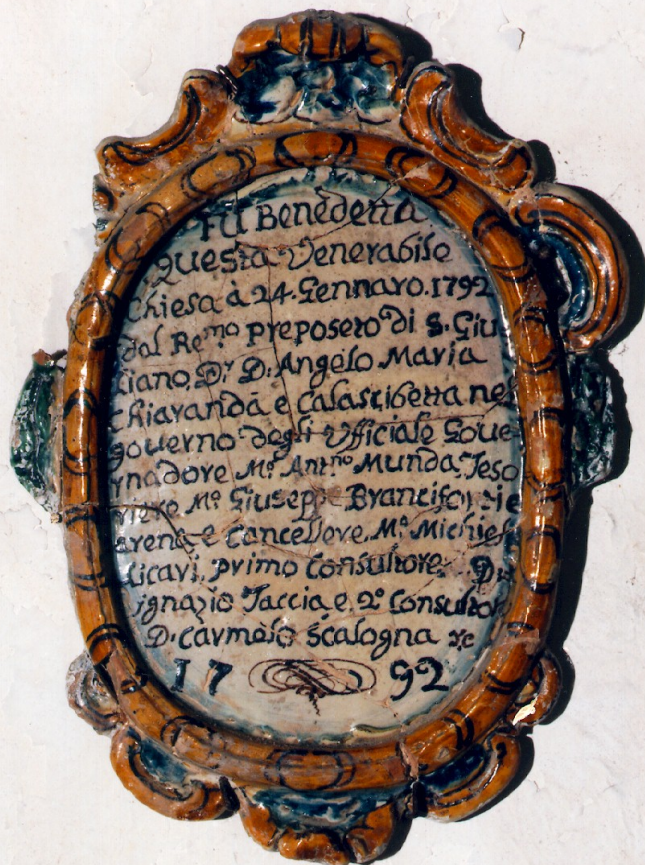 Fu Benedetta
Questa Venerabile
Chiesa à 24. Gennaro. 1792
dal Re.mo preposeto di S. Giu
liano. D.r D. Angelo Maria
Chiarandà e Calascibetta nel
governo degli Ufficiale Gove
rnadore M.o Ant.no Munda. Teso
riere M.o Giuseppe Branciforti e
arena e Cancellere. M.o Michiele
Licavi. primo Consultore. D.
ignazio Taccia e. 2.o Consultor
D. Carmelo Scalogna &c
17 92